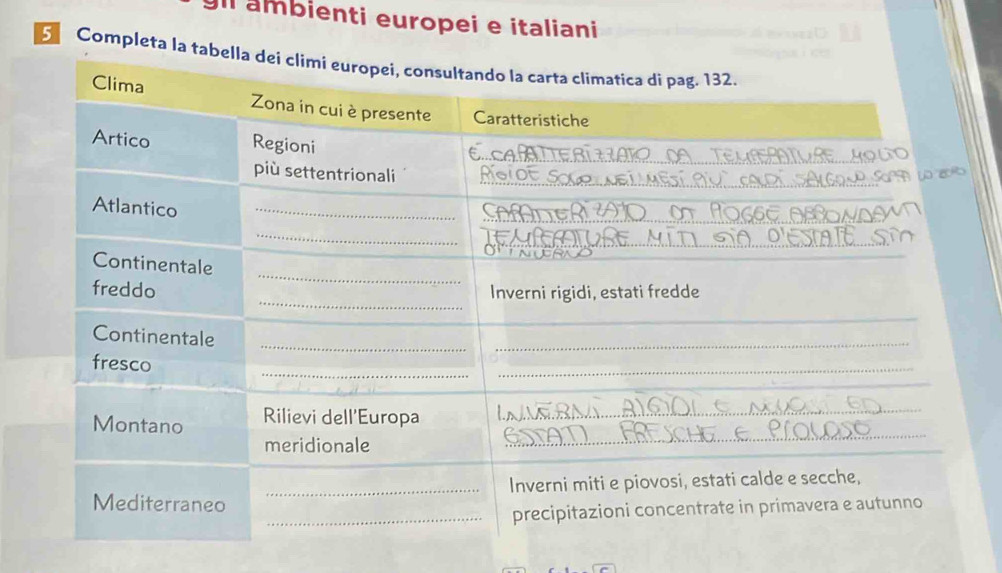 gli ambienti europei e italiani
5 Completa la tabella dei climi europei, consultando la carta climatica di pag. 132.
Clima Zona in cui è presente Caratteristiche
Artico Regioni È CARATTERIZZATO DA TEMPERATURE MOLTO
più settentrionali RIGIDE SOLO NEI MESI PIÙ CALDI SALGONO SOPRA LO ZERO
Atlantico CARATTERIZZATO DA PIOGGE ABBONDANTI
TEMPERATURE MITI SIA D'ESTATE SIA
D'INVERNO
Continentale
freddo Inverni rigidi, estati fredde
Continentale
fresco
Montano Rilievi dell'Europa INVERNI RIGIDI E ED
meridionale ESTATI FRESCHE E PIOVOSO
Mediterraneo Inverni miti e piovosi, estati calde e secche,
precipitazioni concentrate in primavera e autunno